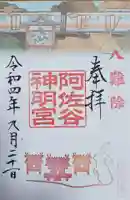 八難除
奉拝
阿佐谷
神明宮
令和四年八月二十一日